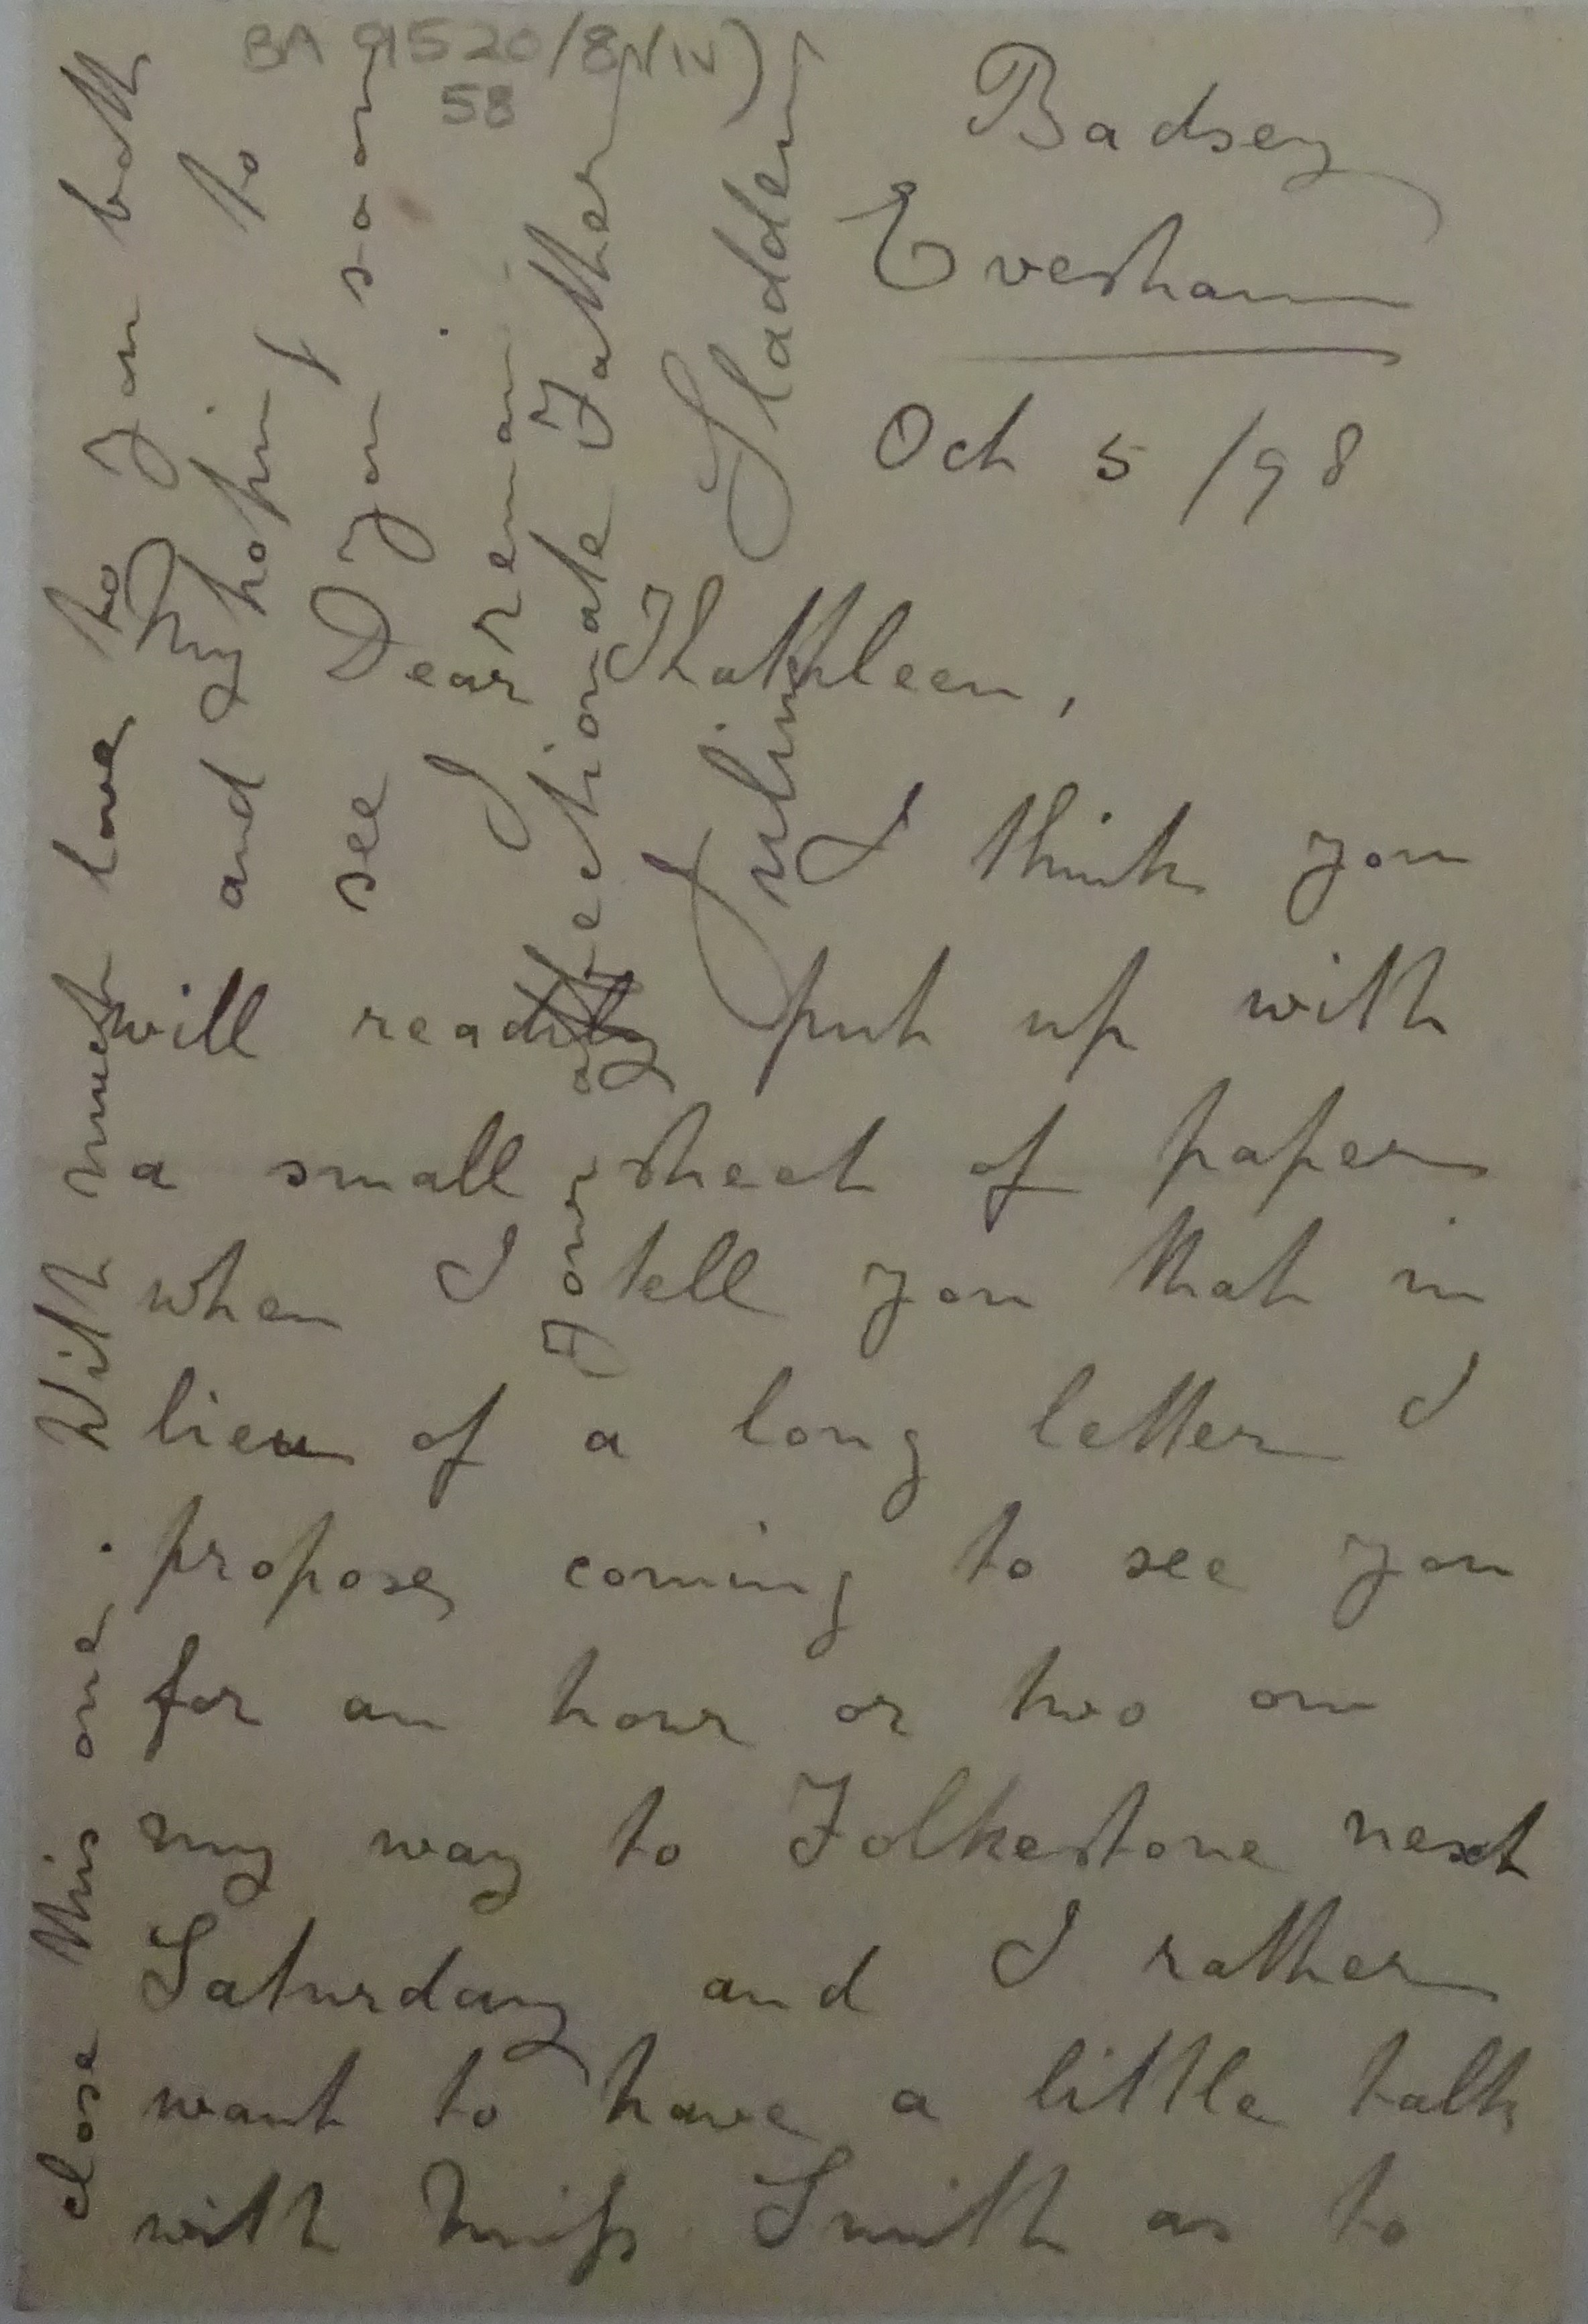 BA 9520/8(iv)
58
Badsey
Evesham
Oct 5/98
Dear Kathleen,
I think you
will readily put up with
a small sheet of paper
when I tell you that in
lieu of a long letter I
propose coming to see you
for an hour or two on
my way to Folkestone next
Saturday and I rather
want to have a little talk
with Miss Smith as to
close this one. With much love to you both
and hoping to
see you soon
I remain
Your affectionate Father
Julius Sladden